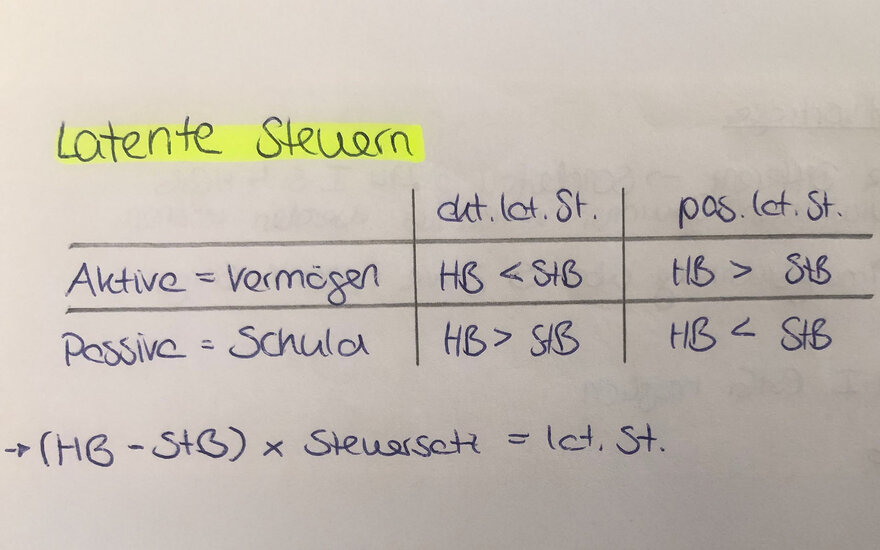 Latente Steuern
akt. lat. St. pas. lat. St.
Aktiva = Vermögen HB < StB HB > StB
Passiva = Schuld HB > StB HB < StB
→ (HB - StB) × Steuersatz = lat. St.